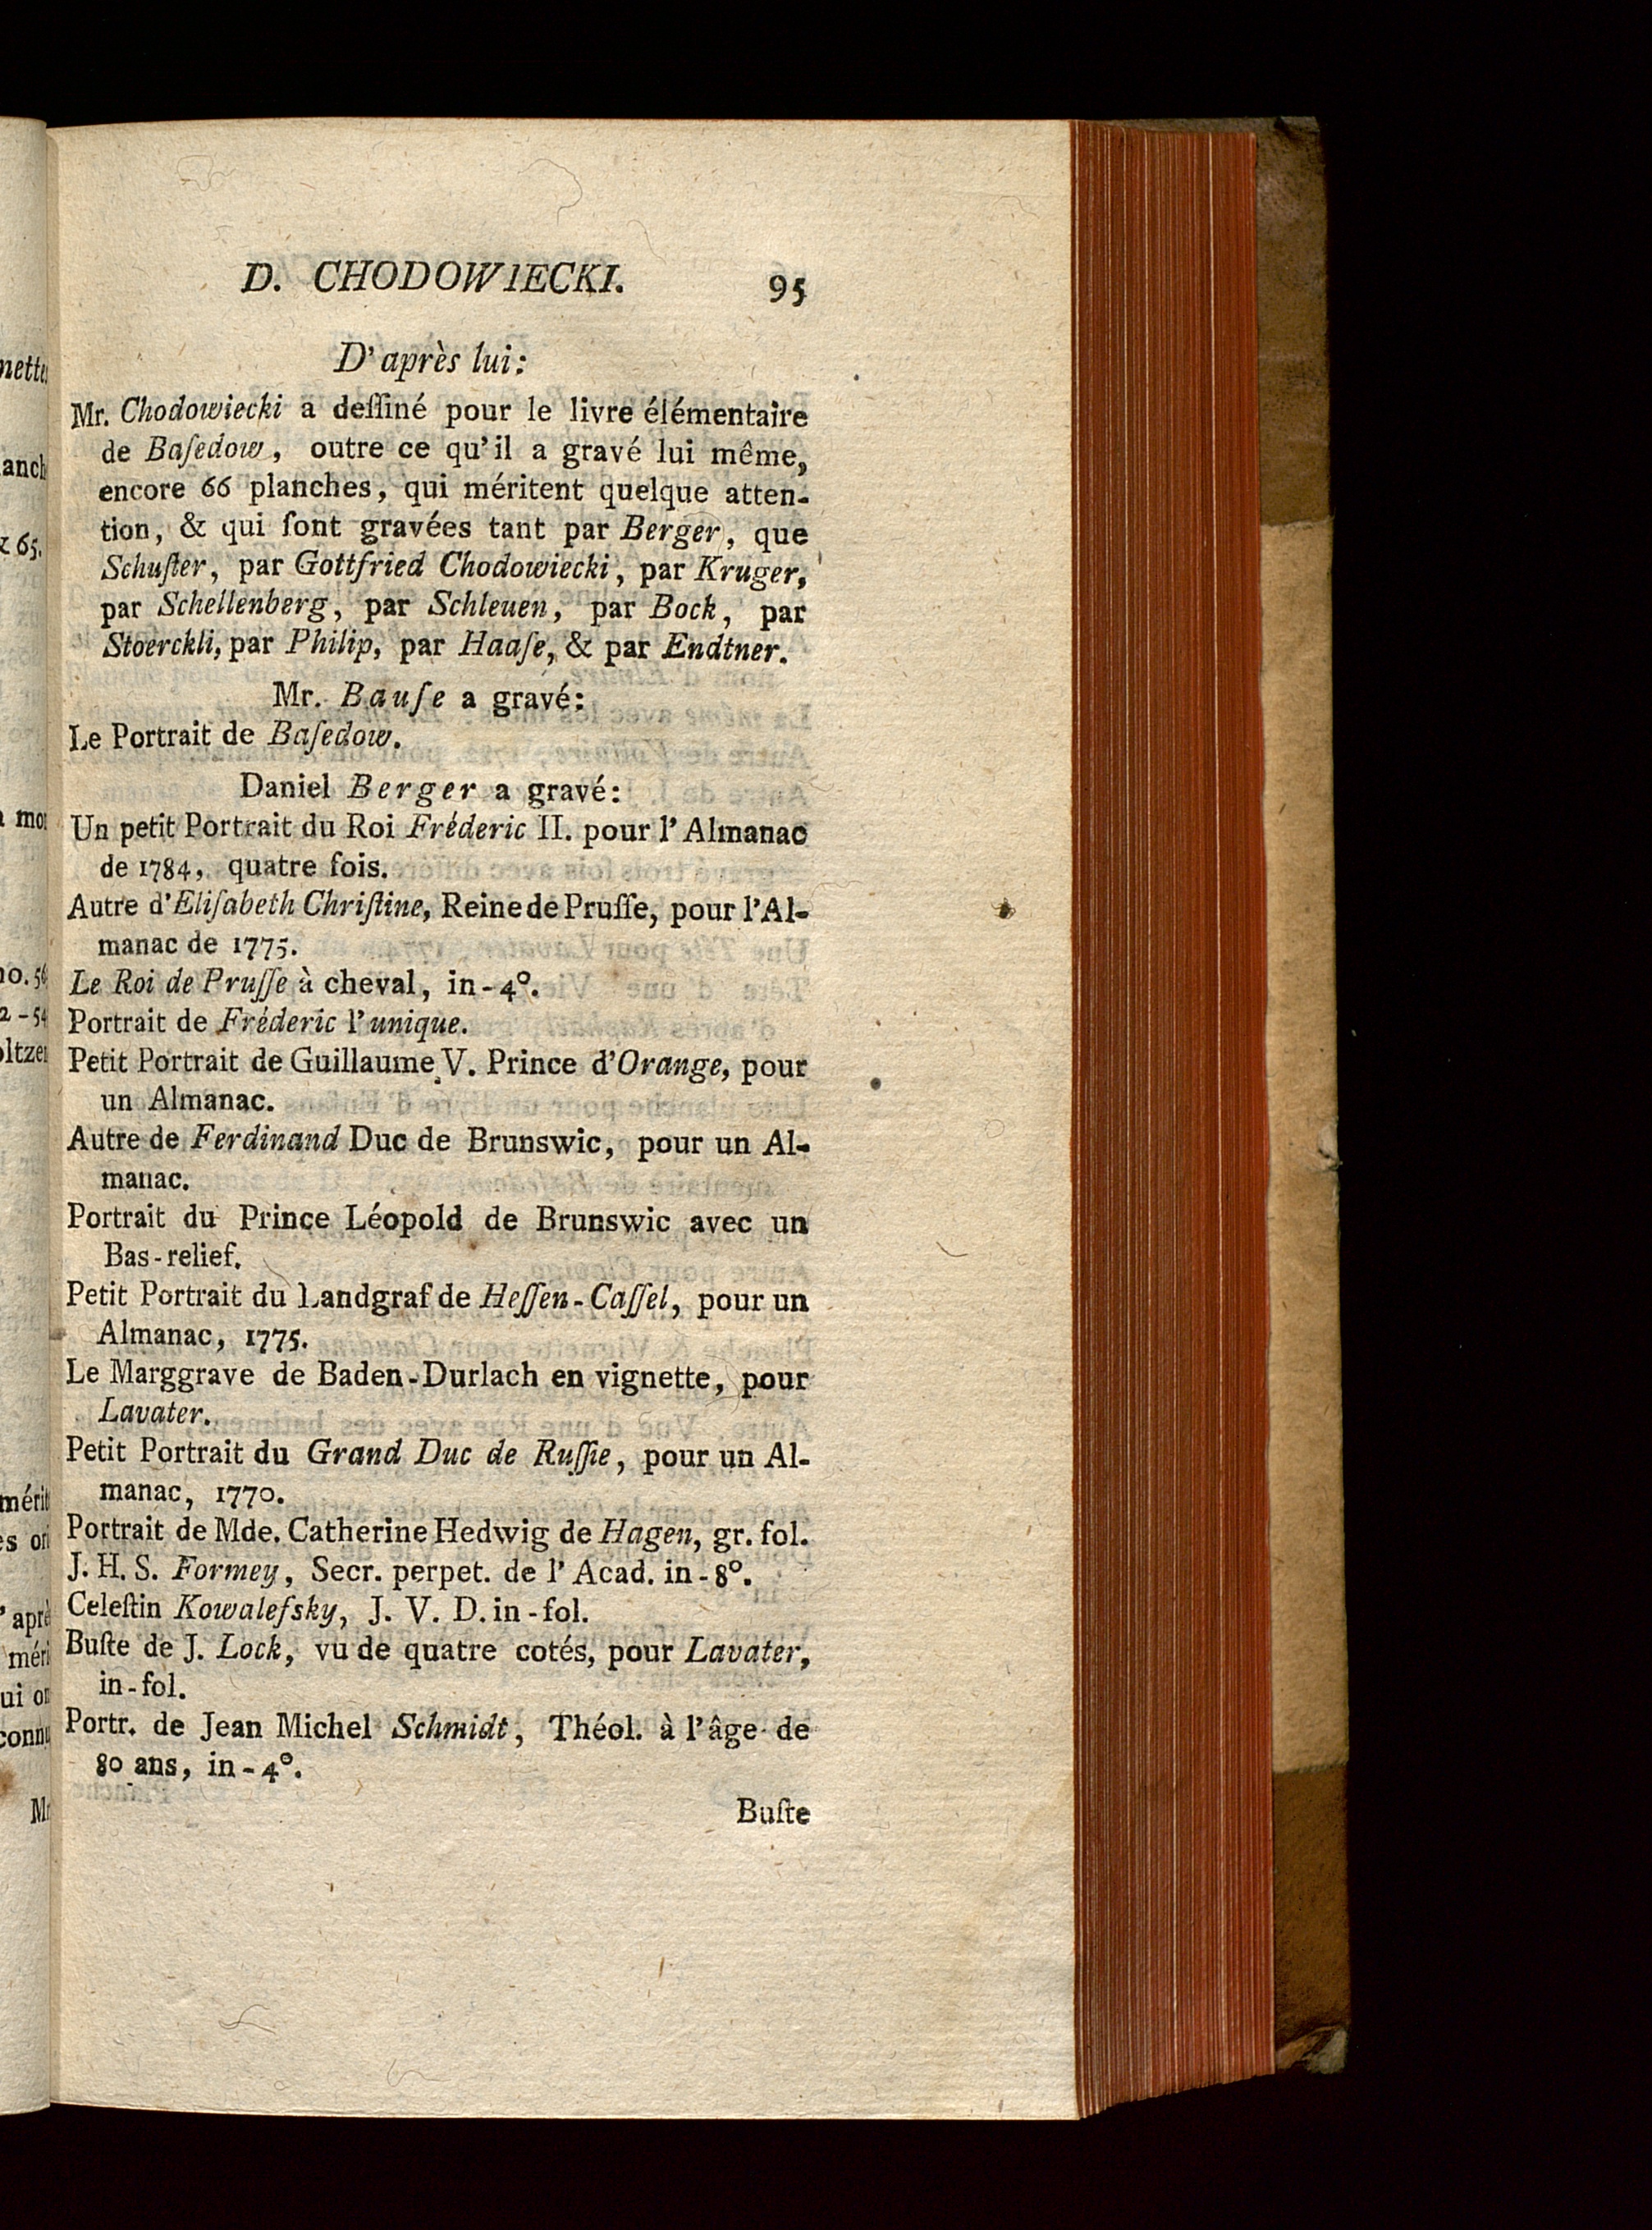 D. CHODOWIECKI. 95
D'après lui:
Mr. Chodowiecki a deſſiné pour le livre élémentaire
de Baſedow, outre ce qu'il a gravé lui même,
encore 66 planches, qui méritent quelque atten-
tion, & qui ſont gravées tant par Berger, que
Schuſter, par Gottfried Chodowiecki, par Kruger,
par Schellenberg, par Schleuen, par Bock, par
Stoerckli, par Philip, par Haaſe, & par Endtner.
Mr. Bauſe a gravé:
Le Portrait de Baſedow.
Daniel Berger a gravé:
Un petit Portrait du Roi Fréderic II. pour l' Almanac
de 1784, quatre fois.
Autre d'Eliſabeth Chriſtine, Reine de Pruſſe, pour l'Al-
manac de 1775.
Le Roi de Pruſſe à cheval, in-4°.
Portrait de Fréderic l'unique.
Petit Portrait de Guillaume V. Prince d'Orange, pour
un Almanac.
Autre de Ferdinand Duc de Brunswic, pour un Al-
manac.
Portrait du Prince Léopold de Brunswic avec un
Bas-relief.
Petit Portrait du Landgraf de Heſſen-Caſſel, pour un
Almanac, 1775.
Le Marggrave de Baden-Durlach en vignette, pour
Lavater.
Petit Portrait du Grand Duc de Ruſſie, pour un Al-
manac, 1770.
Portrait de Mde. Catherine Hedwig de Hagen, gr. fol.
J. H. S. Formey, Secr. perpet. de l' Acad. in-8°.
Celeſtin Kowalefsky, J. V. D. in-fol.
Buſte de J. Lock, vu de quatre cotés, pour Lavater,
in-fol.
Portr. de Jean Michel Schmidt, Théol. à l'âge de
80 ans, in-4°.
Buſte